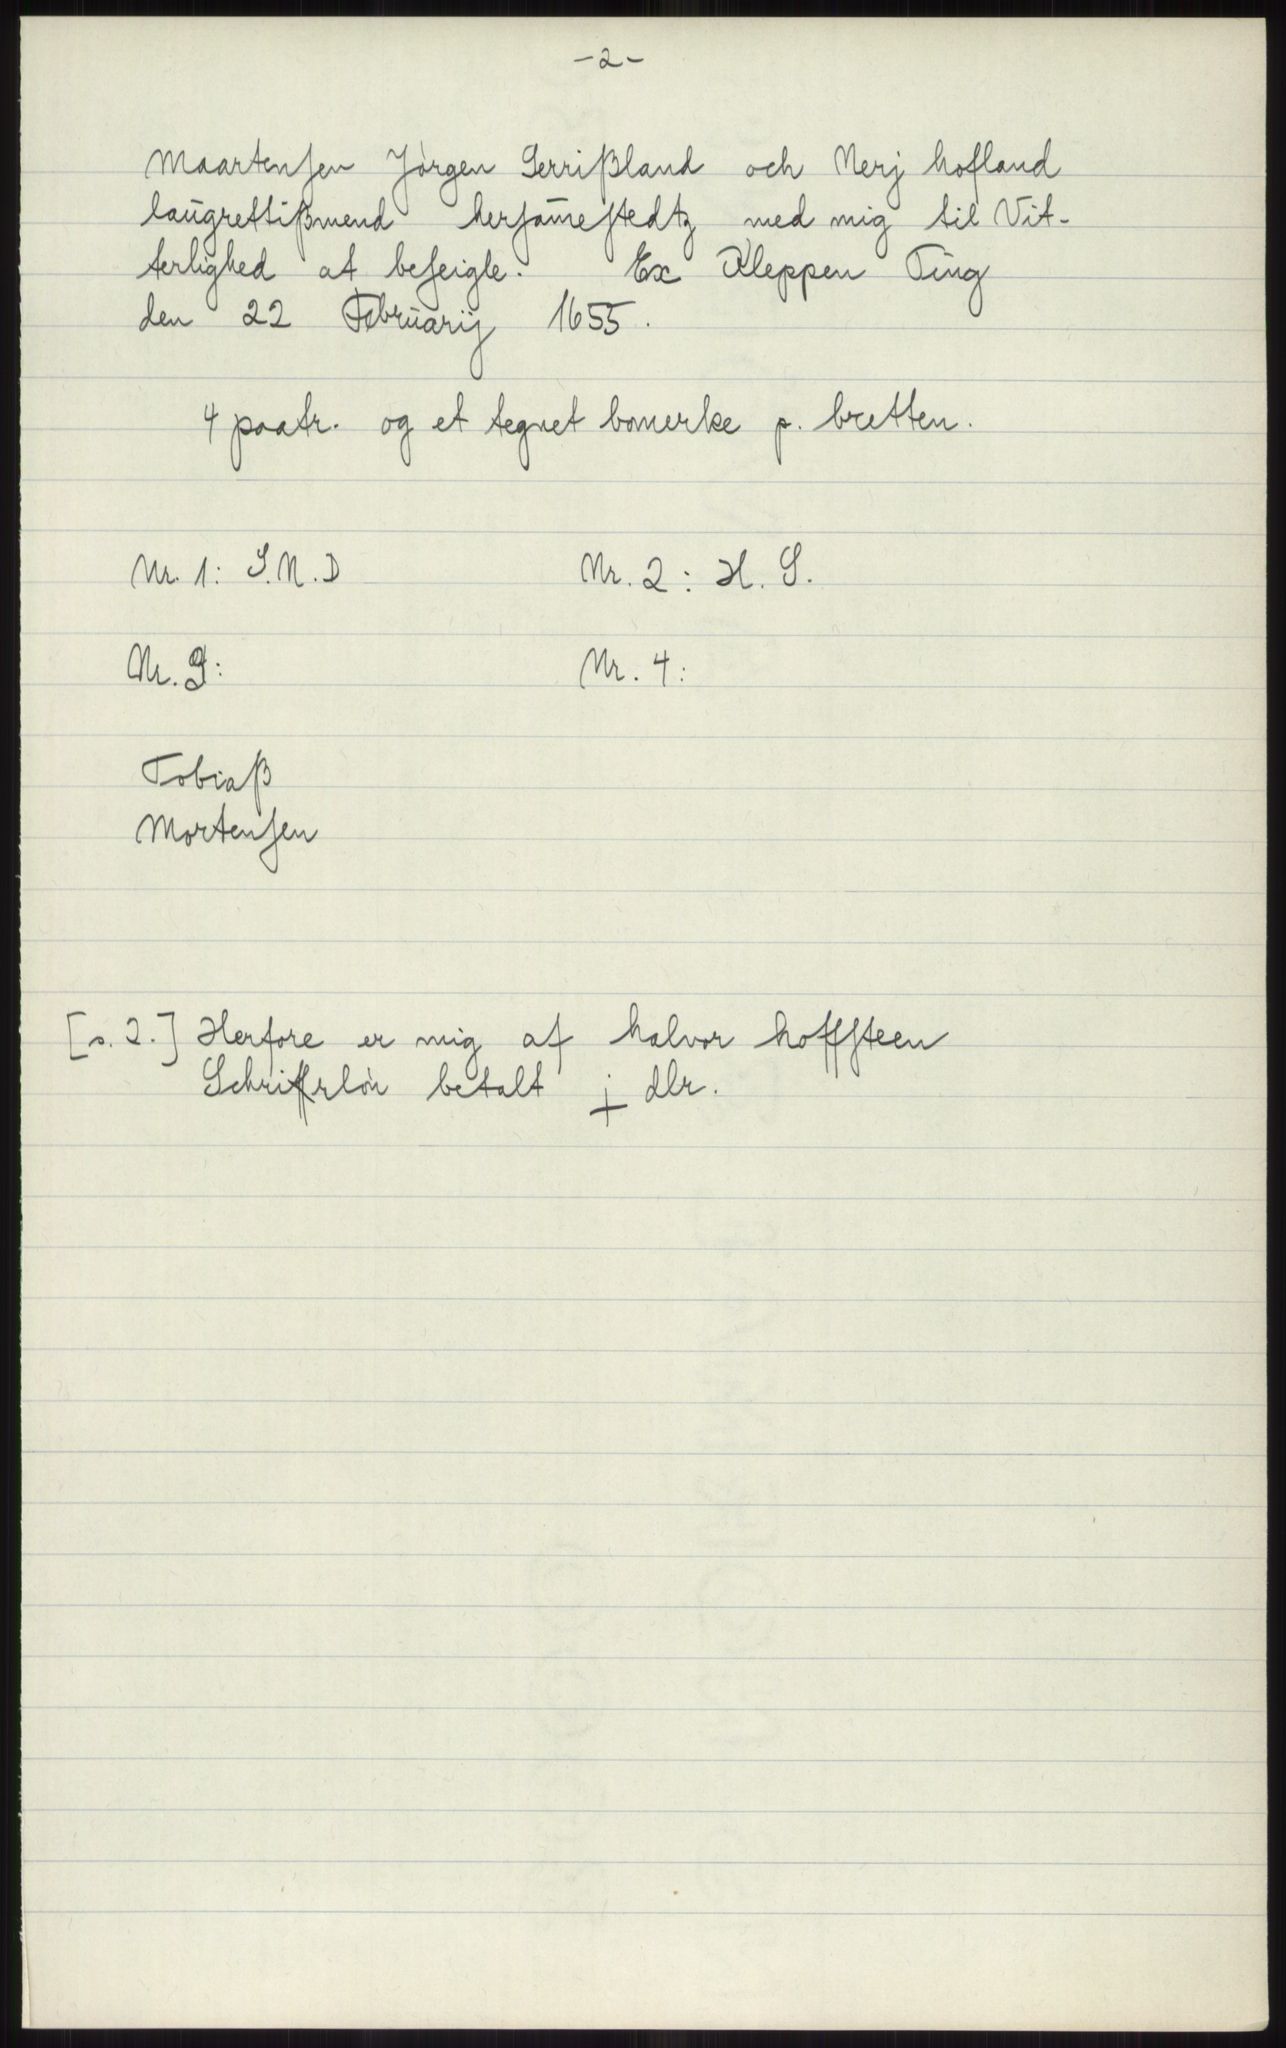 -2-
Maartensen Jörgen Serrißland och Nerj hofland
laugrettißmend hersamestedtz med mig til Vit-
terlighed at beseigle. Ex Kleppen Ting
den 22 Februarij 1655.
4 paatr. og et tegnet bomerke p. bretten.
Nr. 1: S.N.D Nr. 2: H. S.
Nr. 3: Nr. 4:
Tobiaß
Mortensen
[s. 2.] Herfore er mig af halvor hoffsteen
betalt j dlr.